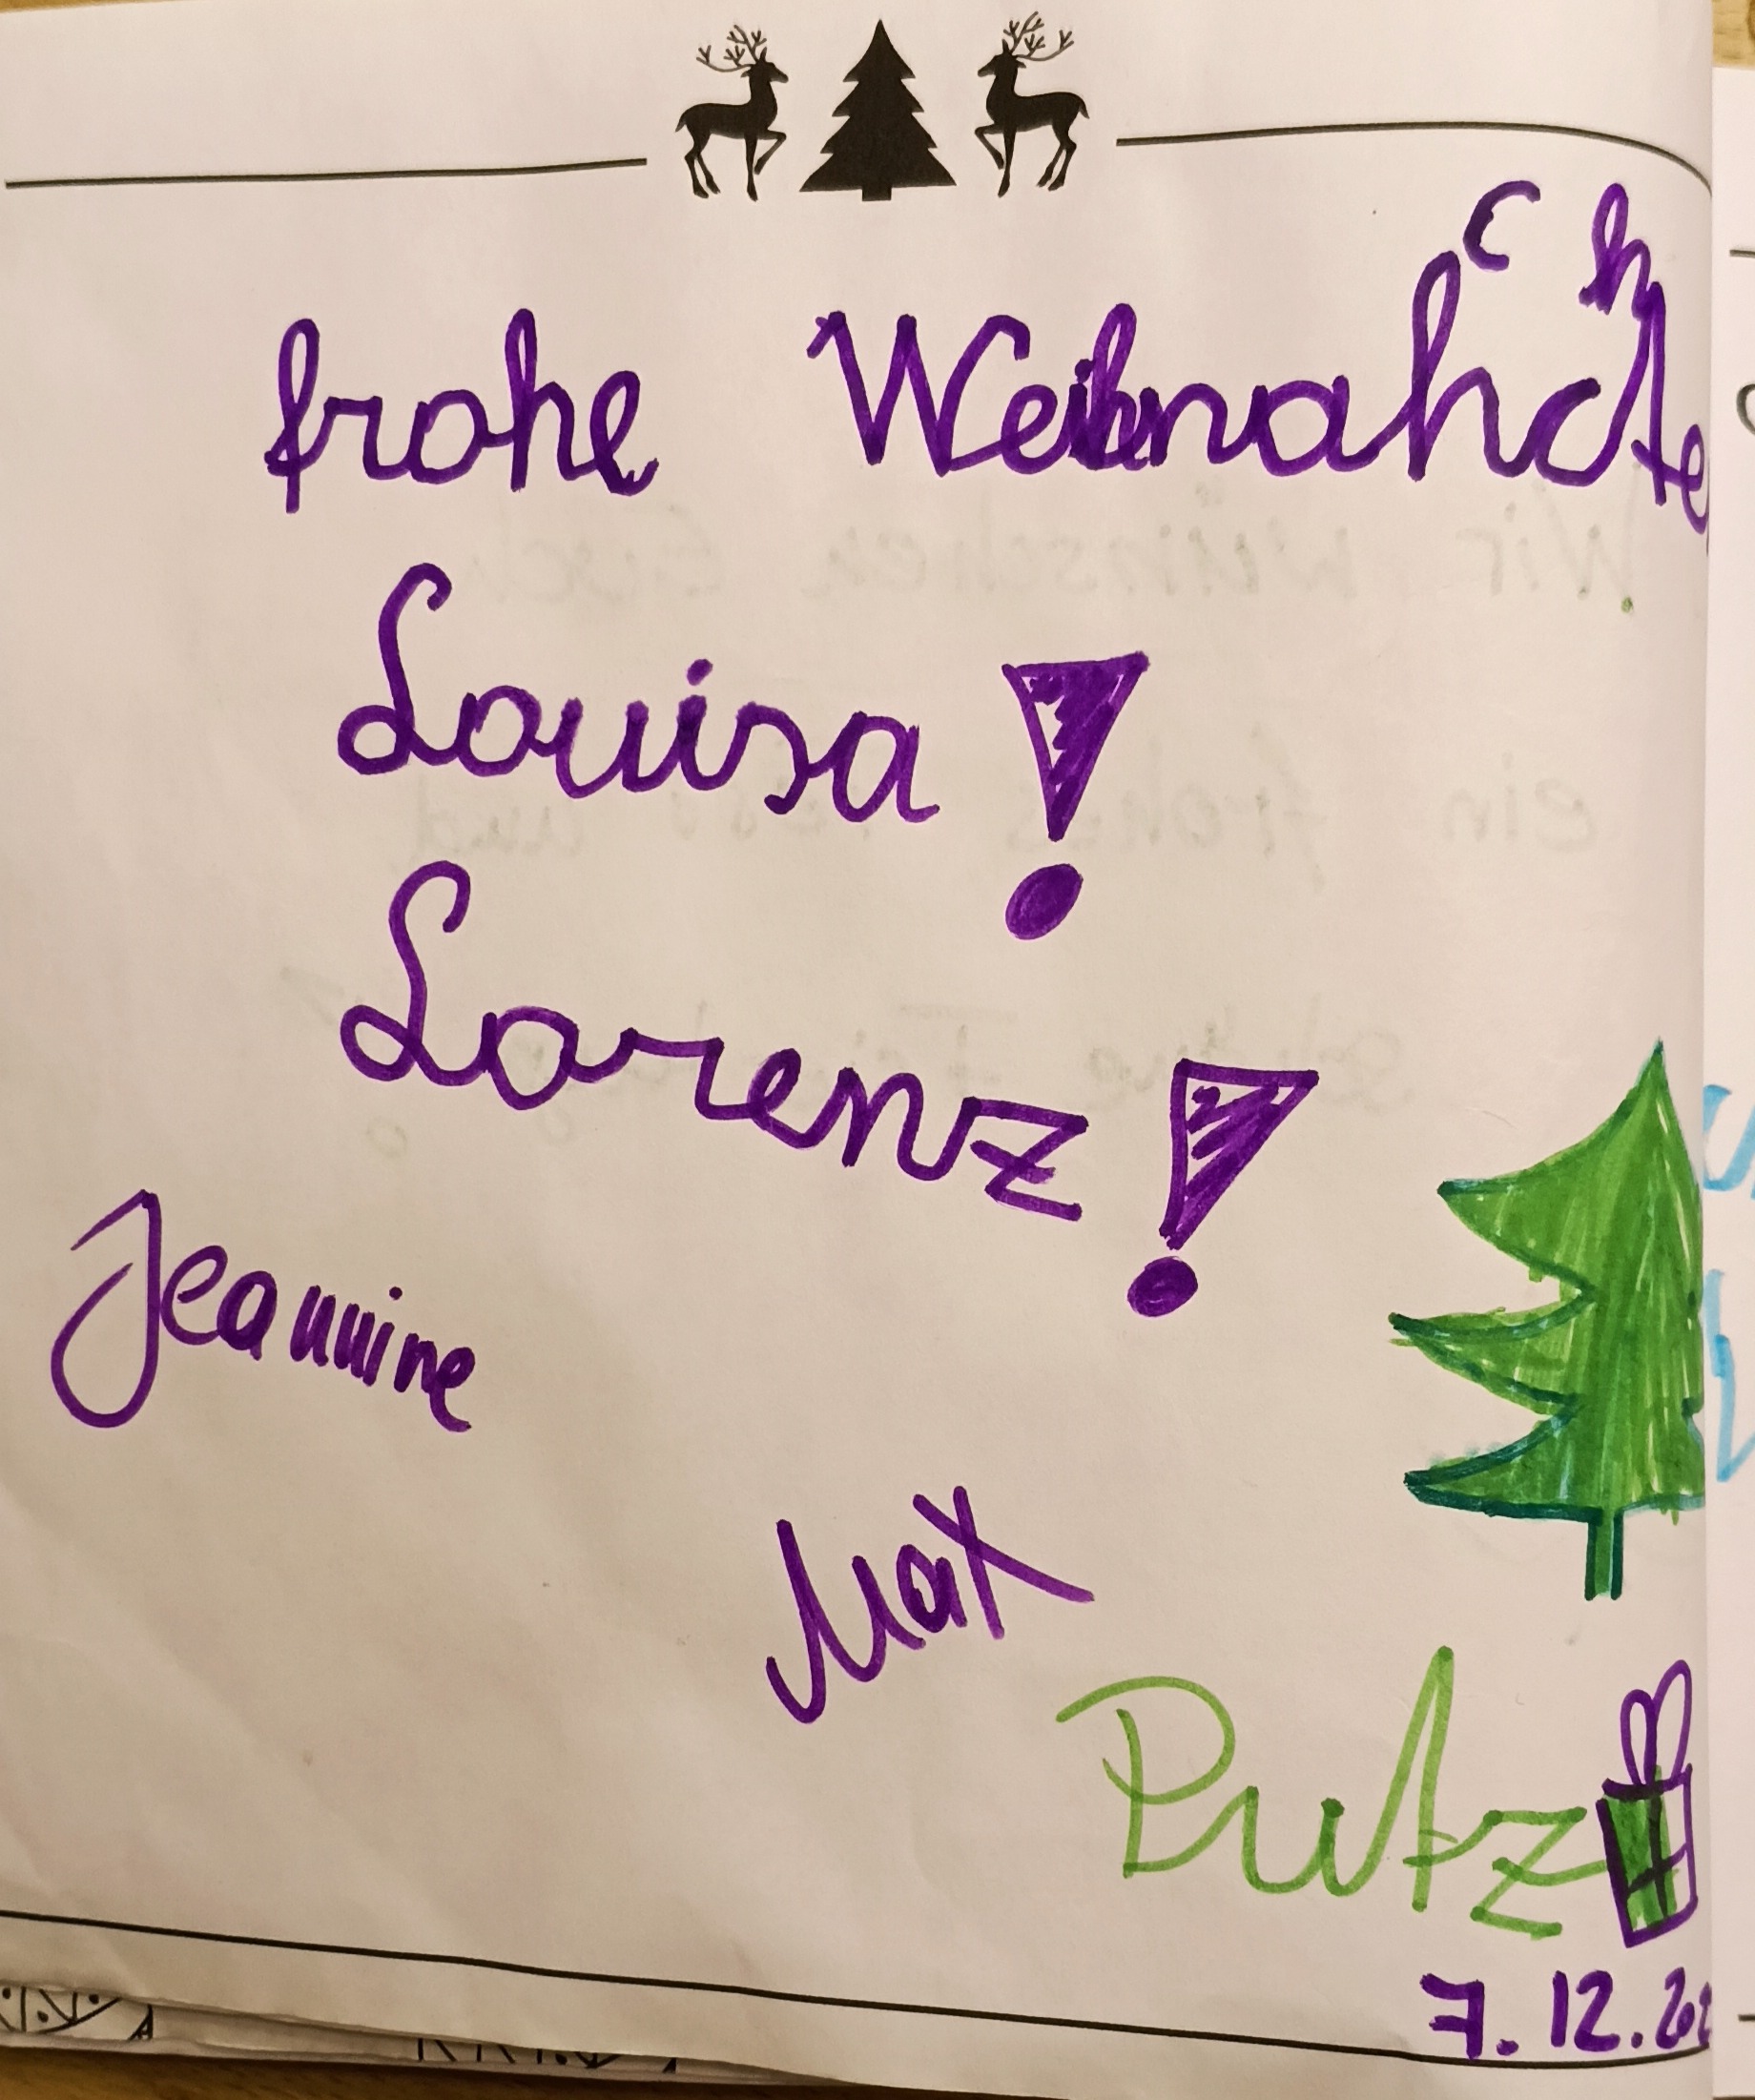 c h
frohe Weihnahcte
Louisa!
Lorenz!
Jeannine
Max
Putz
7.12.20